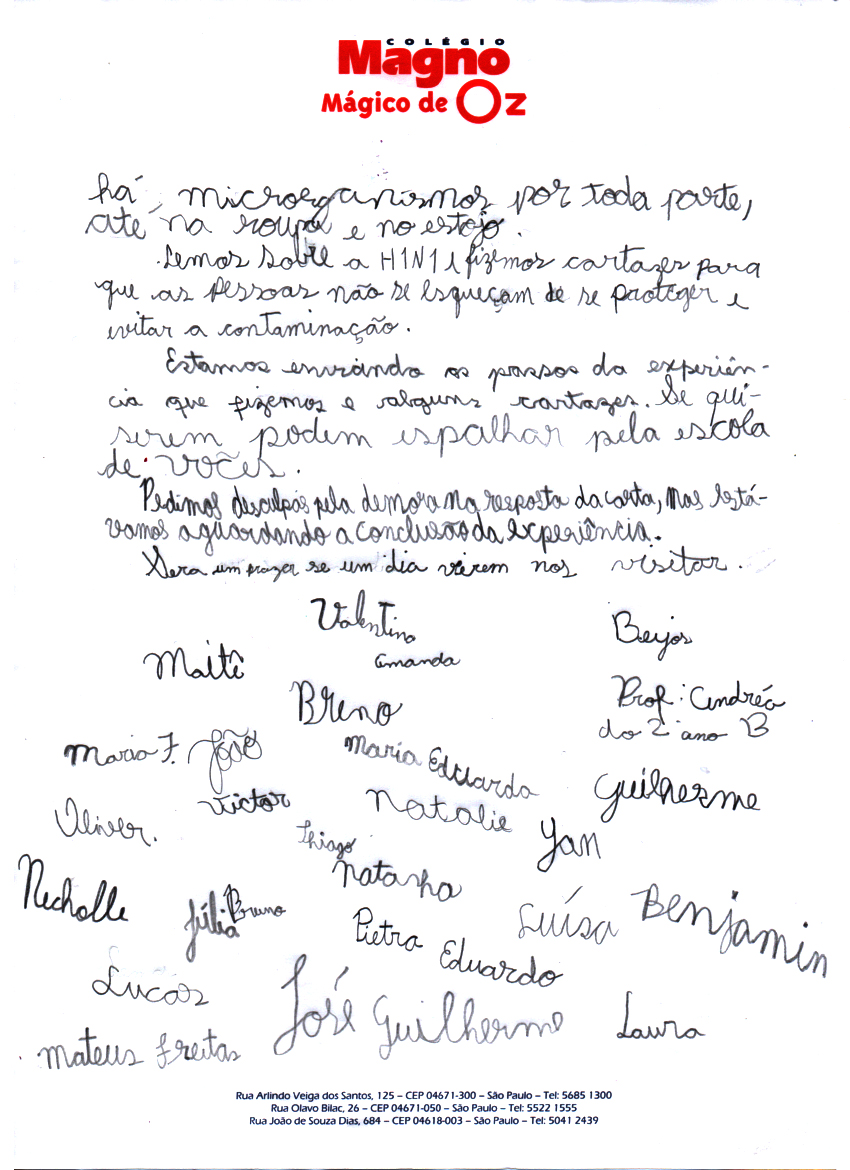 COLÉGIO
Magno
Mágico de Oz
há microorganismos por toda parte,
até na roupa e no estojo.
Lemos sobre a H1N1 e fizemos cartazes para
que as pessoas não se esqueçam de se proteger e
evitar a contaminação.
Estamos enviando os passos da experiên-
cia que fizemos e alguns cartazes. Se qui-
serem podem espalhar pela escola
de vocês.
Pedimos desculpas pela demora na resposta da carta, mas está-
vamos aguardando a conclusão da experiência.
Sera um prazer se um dia vierem nos visitar.
Valentina
Beijos
Maitê
Amanda
Breno
Prof: Andréa
do 2º ano B
Maria F.
João
Maria Eduarda
Guilherme
Victor
Natalie
Oliver.
Thiago
Yan
Nicholle
Natasha
Júlia
Bruno
Pietra
Luísa
Benjamin
Eduardo
Lucas
José Guilherme
Laura
Mateus Freitas
Rua Arlindo Veiga dos Santos, 125 – CEP 04671-300 – São Paulo – Tel: 5685 1300
Rua Olavo Bilac, 26 – CEP 04671-050 – São Paulo – Tel: 5522 1555
Rua João de Souza Dias, 684 – CEP 04618-003 – São Paulo – Tel: 5041 2439